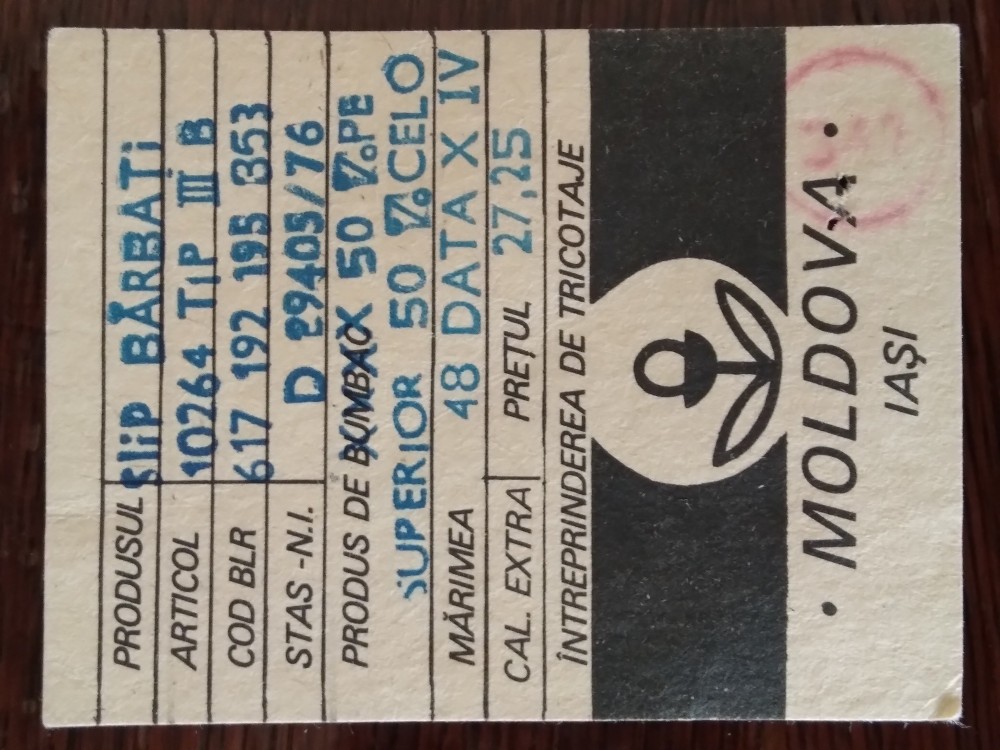 PRODUSUL SliP BĂRBAȚi
ARTICOL 10264 TiP III B
COD BLR 617 192 195 B53
STAS -N.I. D 29405/76
PRODUS DE BUMBAC 50 %.PE
SUPERIOR 50 %.CELO
MĂRIMEA 48 DATA X IV
CAL. EXTRA PREȚUL 27,25
ÎNTREPRINDEREA DE TRICOTAJE
• MOLDOVA •
IAȘI